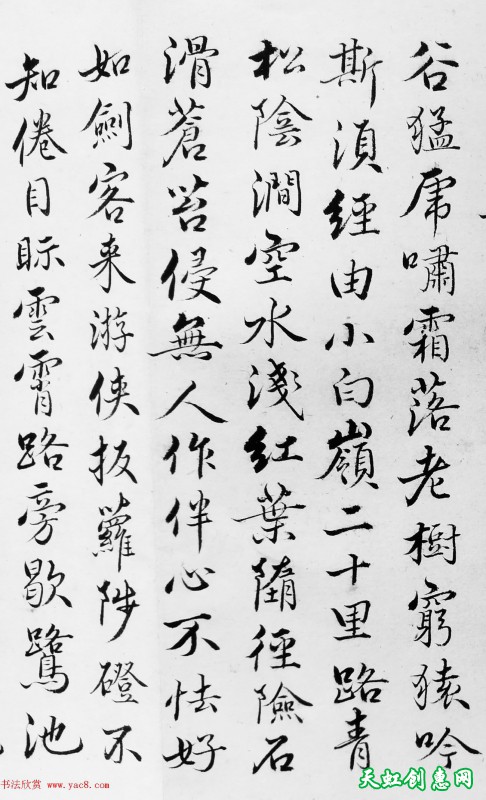 谷猛虎嘯霜落老樹窮猿吟
斯湏經由小白嶺二十里路青
松陰澗空水淺紅葉墮徑險石
滑蒼苔侵無人作伴心不怯好
如劍客来游俠扳蘿陟磴不
知倦目眎雲霄路旁歇鷺池
书法欣赏 www.yac8.com
天虹创惠网